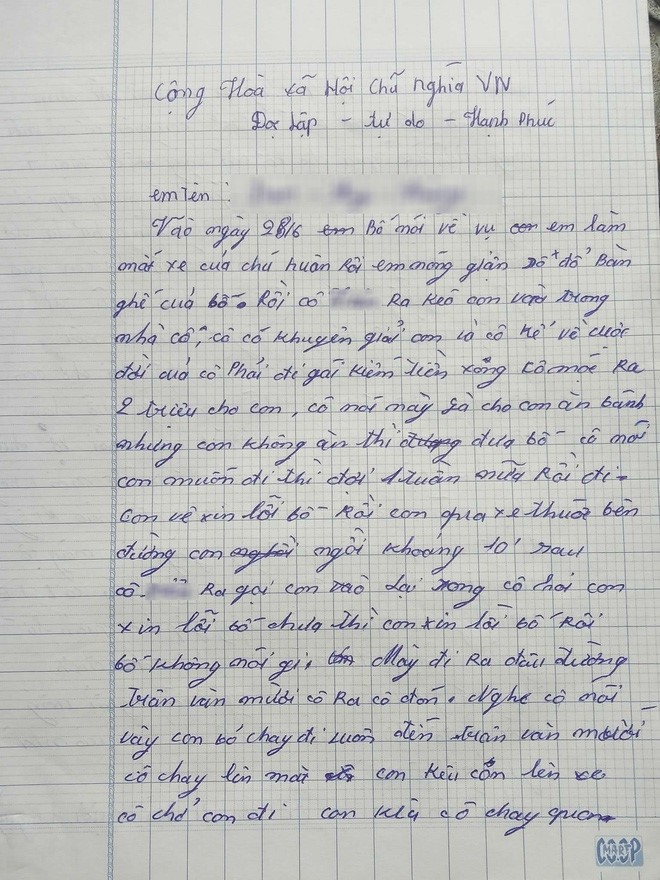 Cộng Hoà xã Hội chũ nghĩa VN
Đọc lập - tự do - Hạnh Phúc
em tên :
Vào ngày 28/6 em Bố nói về vụ con em làm
mất xe cuả chú huân Rồi em nóng giận đổ Bàn
ghế cuả bố. Rồi cô Ra keó con vào trong
nhà cô, cô có khuyên giải con là cô kể về cuộc
đời cuả cô Phải đi gái kiếm tiền xong cô móc Ra
2 triệu cho con, cô nói này là cho con ăn bánh
nhưng con không ăn thì đưa bố cô nói
con muốn đi thì đợi 1 tuần nữa Rồi đi-
con về xin lỗi bố Rồi con qua xe thuốc bên
đường con ngồi khoảng 10' sau
cô Ra gọi con vào lại xong cô hỏi con
xin lỗi bố chưa thì con xin lỗi bố Rồi
bố không nói gì, Mày đi Ra đầu đường
Trần văn mười cô Ra cô đón. Nghe cô nói
vậy con bỏ chạy đi luôn đến trần văn mười
cô chạy lên mà con kêu con lên xe
cô chở con đi con kêu cô chạy quen
COOP
MART